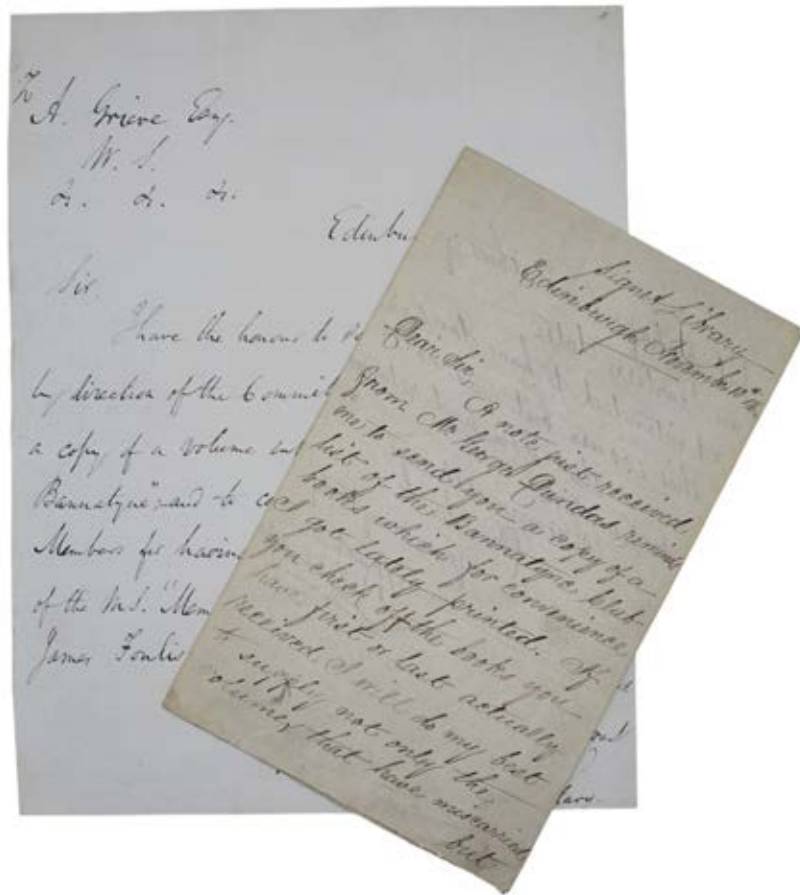 To
A. Grieve Esq.
W. S.
&c. &c. &c.
Edinbu
Sir,
I have the honour to
by direction of the Commit
a copy of a volume
Bannatyne", and to
Members for having
of the M.S. "Mem
James Foulis
Signet Library
Edinburgh
Dear Sir,
A note just received
from Mr George Dundas reminds
me to send you a copy of a
list of the Bannatyne Club
books which for convenience I
got lately printed. If
you check off the books you
have first or last actually
received I will do my best
to supply not only the
volumes that have miscarried
but